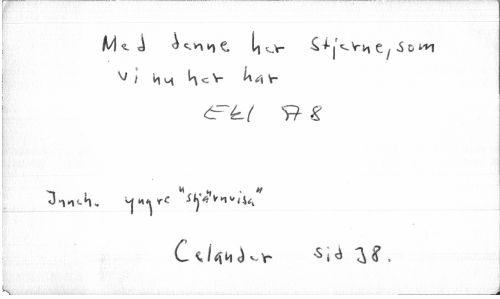 Med denne her stjerne, som
vi nu her har
Ekl A 8
Inneh. yngre "stjärnvisa"
Celander sid 38.